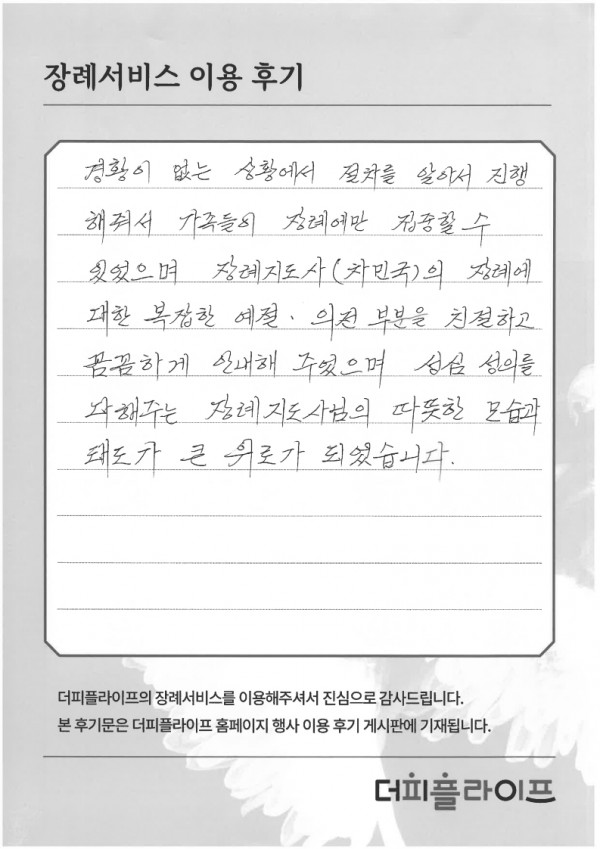 장례서비스 이용 후기
경황이 없는 상황에서 절차를 알아서 진행
해줘서 가족들이 장례에만 집중할 수
있었으며 장례지도사(차민국)의 장례에
대한 복잡한 예절·의전 부분을 친절하고
꼼꼼하게 안내해 주었으며 성심 성의를
다해주는 장례지도사님의 따뜻한 모습과
태도가 큰 위로가 되었습니다.
더피플라이프의 장례서비스를 이용해주셔서 진심으로 감사드립니다.
본 후기문은 더피플라이프 홈페이지 행사 이용 후기 게시판에 기재됩니다.
더피플라이프